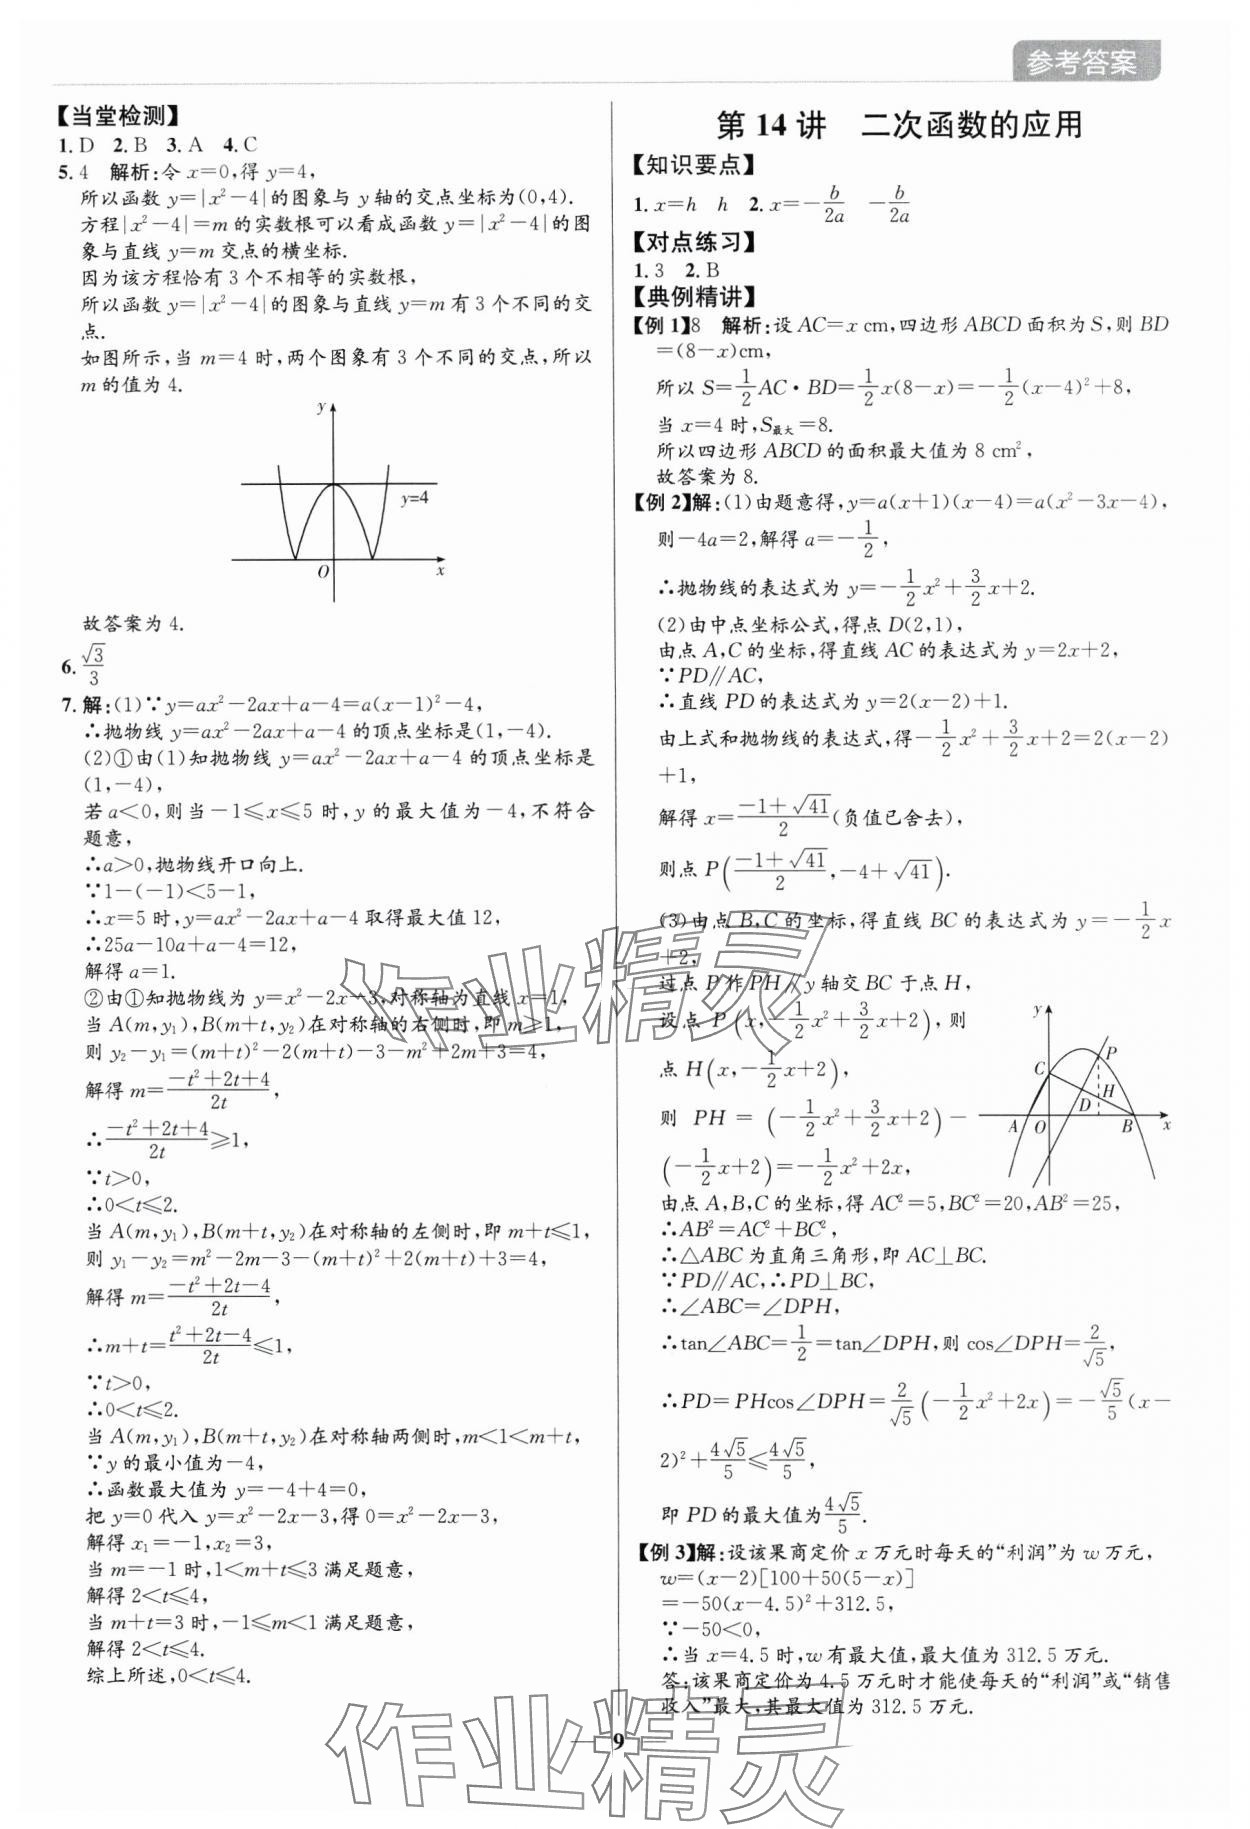 参考答案
【当堂检测】
1.D 2.B 3.A 4.C
5.4 解析:令 x=0,得 y=4,
所以函数 y=|x²-4|的图象与 y 轴的交点坐标为(0,4).
方程|x²-4|=m 的实数根可以看成函数 y=|x²-4|的图
象与直线 y=m 交点的横坐标.
因为该方程恰有 3 个不相等的实数根,
所以函数 y=|x²-4|的图象与直线 y=m 有 3 个不同的交
点.
如图所示,当 m=4 时,两个图象有 3 个不同的交点,所以
m 的值为 4.
y
y=4
O
x
故答案为 4.
6.√3/3
7.解:(1)∵y=ax²-2ax+a-4=a(x-1)²-4,
∴抛物线 y=ax²-2ax+a-4 的顶点坐标是(1,-4).
(2)①由(1)知抛物线 y=ax²-2ax+a-4 的顶点坐标是
(1,-4),
若 a<0,则当-1≤x≤5 时,y 的最大值为-4,不符合
题意,
∴a>0,抛物线开口向上.
∵1-(-1)<5-1,
∴x=5 时,y=ax²-2ax+a-4 取得最大值 12,
∴25a-10a+a-4=12,
解得 a=1.
②由①知抛物线为 y=x²-2x-3,对称轴为直线 x=1,
当 A(m,y₁),B(m+t,y₂)在对称轴的右侧时,即 m≥1,
则 y₂-y₁=(m+t)²-2(m+t)-3-m²+2m+3=4,
解得 m=(-t²+2t+4)/2t,
∴(-t²+2t+4)/2t≥1,
∵t>0,
∴0<t≤2.
当 A(m,y₁),B(m+t,y₂)在对称轴的左侧时,即 m+t≤1,
则 y₁-y₂=m²-2m-3-(m+t)²+2(m+t)+3=4,
解得 m=(-t²+2t-4)/2t,
∴m+t=(t²+2t-4)/2t≤1,
∵t>0,
∴0<t≤2.
当 A(m,y₁),B(m+t,y₂)在对称轴两侧时,m<1<m+t,
∵y 的最小值为-4,
∴函数最大值为 y=-4+4=0,
把 y=0 代入 y=x²-2x-3,得 0=x²-2x-3,
解得 x₁=-1,x₂=3,
当 m=-1 时,1<m+t≤3 满足题意,
解得 2<t≤4,
当 m+t=3 时,-1≤m<1 满足题意,
解得 2<t≤4.
综上所述,0<t≤4.
第 14 讲 二次函数的应用
【知识要点】
1.x=h h 2.x=-b/2a -b/2a
【对点练习】
1.3 2.B
【典例精讲】
【例 1】8 解析:设 AC=x cm,四边形 ABCD 面积为 S,则 BD
=(8-x)cm,
所以 S=1/2AC·BD=1/2x(8-x)=-1/2(x-4)²+8,
当 x=4 时,S最大=8.
所以四边形 ABCD 的面积最大值为 8 cm²,
故答案为 8.
【例 2】解:(1)由题意得,y=a(x+1)(x-4)=a(x²-3x-4),
则-4a=2,解得 a=-1/2,
∴抛物线的表达式为 y=-1/2x²+3/2x+2.
(2)由中点坐标公式,得点 D(2,1),
由点 A,C 的坐标,得直线 AC 的表达式为 y=2x+2,
∵PD∥AC,
∴直线 PD 的表达式为 y=2(x-2)+1.
由上式和抛物线的表达式,得-1/2x²+3/2x+2=2(x-2)
+1,
解得 x=(-1+√41)/2(负值已舍去),
则点 P((-1+√41)/2,-4+√41).
(3)由点 B,C 的坐标,得直线 BC 的表达式为 y=-1/2x
+2,
过点 P 作 PH∥y 轴交 BC 于点 H,
设点 P(x,-1/2x²+3/2x+2),则
点 H(x,-1/2x+2),
则 PH=(-1/2x²+3/2x+2)-
(-1/2x+2)=-1/2x²+2x,
y
C
P
H
D
A
O
B
x
由点 A,B,C 的坐标,得 AC²=5,BC²=20,AB²=25,
∴AB²=AC²+BC²,
∴△ABC 为直角三角形,即 AC⊥BC.
∵PD∥AC,∴PD⊥BC,
∴∠ABC=∠DPH,
∴tan∠ABC=1/2=tan∠DPH,则 cos∠DPH=2/√5,
∴PD=PHcos∠DPH=2/√5(-1/2x²+2x)=-√5/5(x-
2)²+4√5/5≤4√5/5,
即 PD 的最大值为4√5/5.
【例 3】解:设该果商定价 x 万元时每天的“利润”为 w 万元,
w=(x-2)[100+50(5-x)]
=-50(x-4.5)²+312.5,
∵-50<0,
∴当 x=4.5 时,w 有最大值,最大值为 312.5 万元.
答:该果商定价为 4.5 万元时才能使每天的“利润”或“销售
收入”最大,其最大值为 312.5 万元.
9
作业精灵
作业精灵